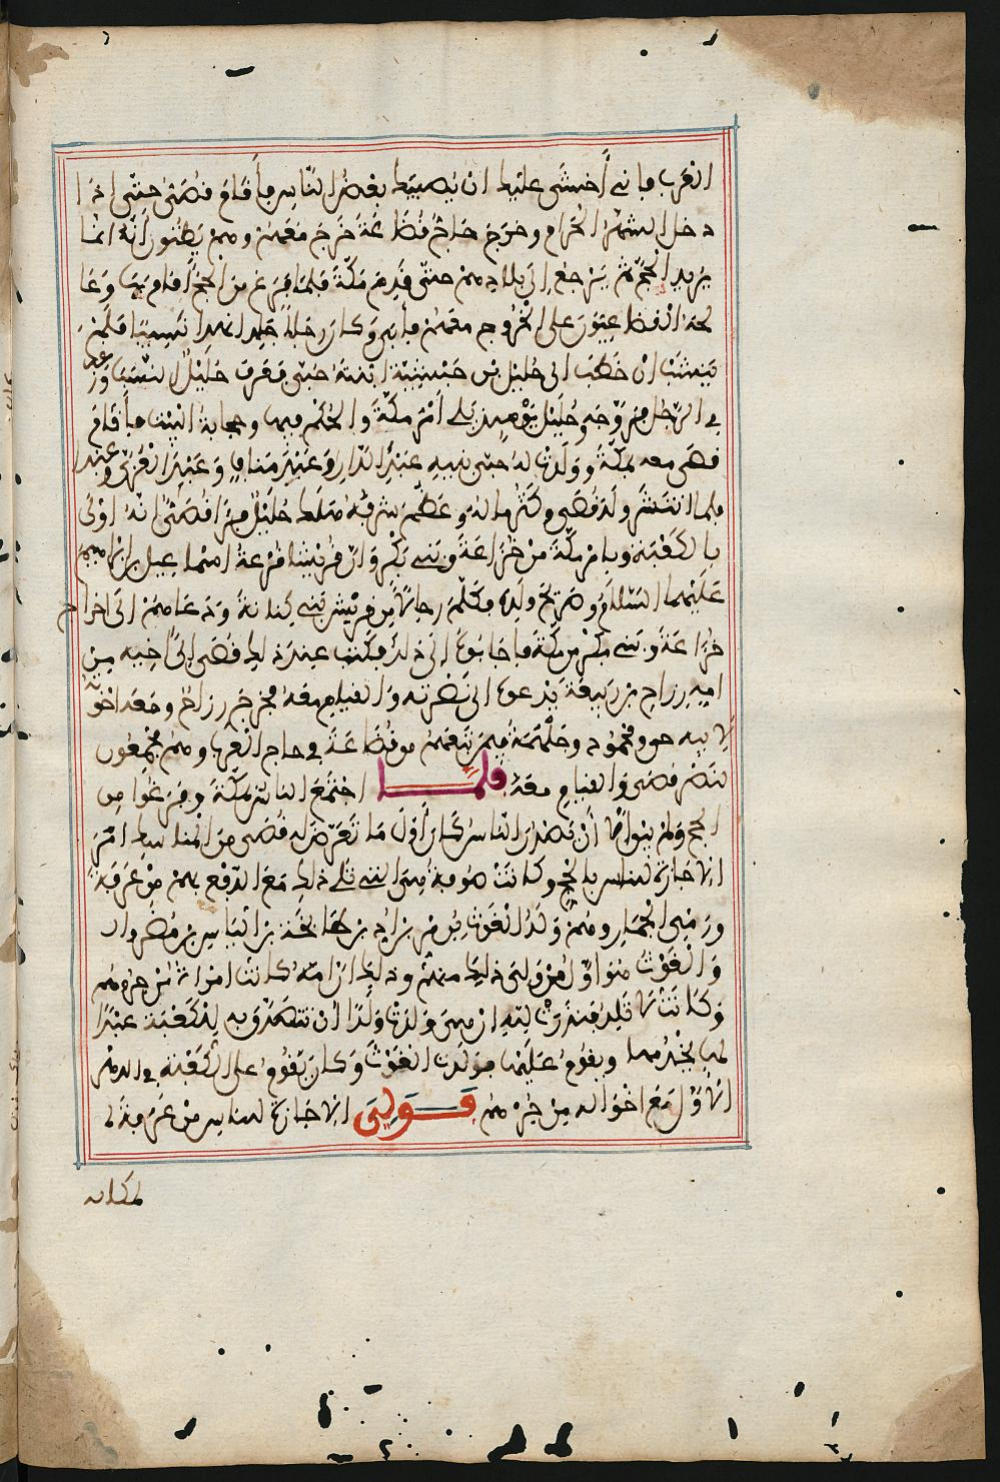 العرب فاني أخشى عليك ان يصيبك بعض الناس فأقام قصي حتى اذا
دخل الشهر الحرام وخرج حاج قضاعة خرج معهم وهم يظنون أنه انما
يريد الحج ثم يرجع الى بلادهم حتى قدم مكة فلما فرغ من الحج اقام بها وعا
لجه القضاعيون على الخروج معهم فابى وكان رجلا جلدا نهدا نسيبا فلم
ينشب ان خطب الى حليل بن حبشية ابنته حبى فعرف حليل النسب ورغب
في الرجل فزوجه وحليل يومئذ يلي أمر مكة والحكم فيها وحجابة البيت فأقام
قصي معه بمكة وولدت له حبى بنيه عبد الدار وعبد مناف وعبد العزى وعبد
فلما انتشر ولد قصي وكثر ماله وعظم شرفه هلك حليل فرأى قصي انه اولى
بالكعبة وبامر مكة من خزاعة وبني بكر وان قريشا فرعة اسماعيل بن ابراهيم
عليهما السلام وصريح ولده فكلم رجالا من قريش بني كنانة ودعاهم الى اخراج
خزاعة وبني بكر من مكة فاجابوه الى ذلك فكتب عند ذلك قصي الى اخيه من
امه رزاح بن ربيعة يدعوه الى نصرته والقيام معه فخرج رزاح ومعه اخوته
لابيه حن ومحمود وجلهمة فيمن تبعهم من قضاعة في حاج العرب وهم مجمعون
لنصر قصي والقيام معه فلما اجتمع الناس بمكة وفرغوا من
الحج ولم يبق الا أن يصدر الناس كان أول ما تعرض له قصي من المناسك امر
الاجازة للناس بالحج وكانت صوفة هي التي تلي ذلك مع الدفع بهم من عرفة
ورمي الجمار وهم ولد الغوث بن مر بن اد بن طابخة بن الياس بن مضر وان
والغوث هو اول من ولي ذلك منهم وذلك ان امه كانت امراة من جرهم
وكانت لا تلد فنذرت لله ان هي ولدت ولدا أن تتصدق به للكعبة عبدا
لها يخدمها ويقوم عليها فولدت الغوث وكان يقوم على الكعبة في الدهر
الاول مع اخواله من جرهم فولي الاجازة للناس من عرفة ل
لمكانه